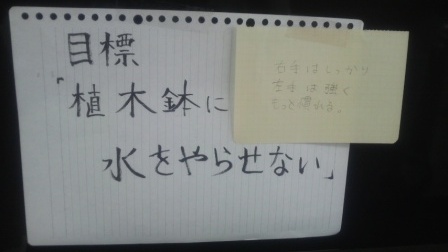 目標
「植木鉢に
水をやらせない」
右手はしっかり
左手は強く
もっと慣れる。